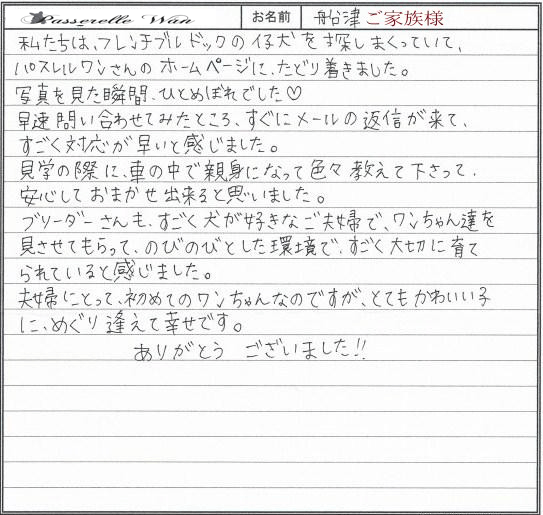 Passerelle Wan お名前 船津ご家族様
私たちは、フレンチブルドックの仔犬を探しまくっていて、
パスレルワンさんのホームページに、たどり着きました。
写真を見た瞬間、ひとめぼれでした♡
早速問い合わせてみたところ、すぐにメールの返信が来て、
すごく対応が早いと感じました。
見学の際に、車の中で親身になって色々教えて下さって、
安心しておまかせ出来ると思いました。
ブリーダーさんも、すごく犬が好きなご夫婦で、ワンちゃん達を
見させてもらって、のびのびとした環境で、すごく大切に育て
られていると感じました。
夫婦にとって、初めてのワンちゃんなのですが、とてもかわいい子
に、めぐり逢えて幸せです。
ありがとう ございました!!